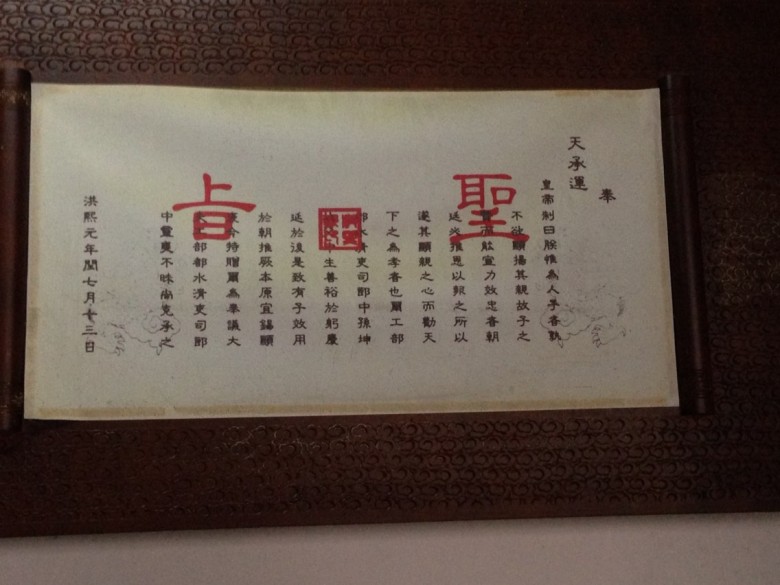 聖旨
奉
天承運
皇帝制曰朕惟為人子者孰
不欲顯揚其親故子之
而能宣力效忠者朝
廷必推恩以報之所以
遂其顯親之心而勸天
下之為孝者也爾工部
都水清吏司郎中孫坤
生善裕於躬慶
延於後是致有子效用
於朝推厥本原宜錫顯
今特贈爾為奉議大
夫工部都水清吏司郎
中靈爽不昧尚克承之
洪熙元年閏七月十三日